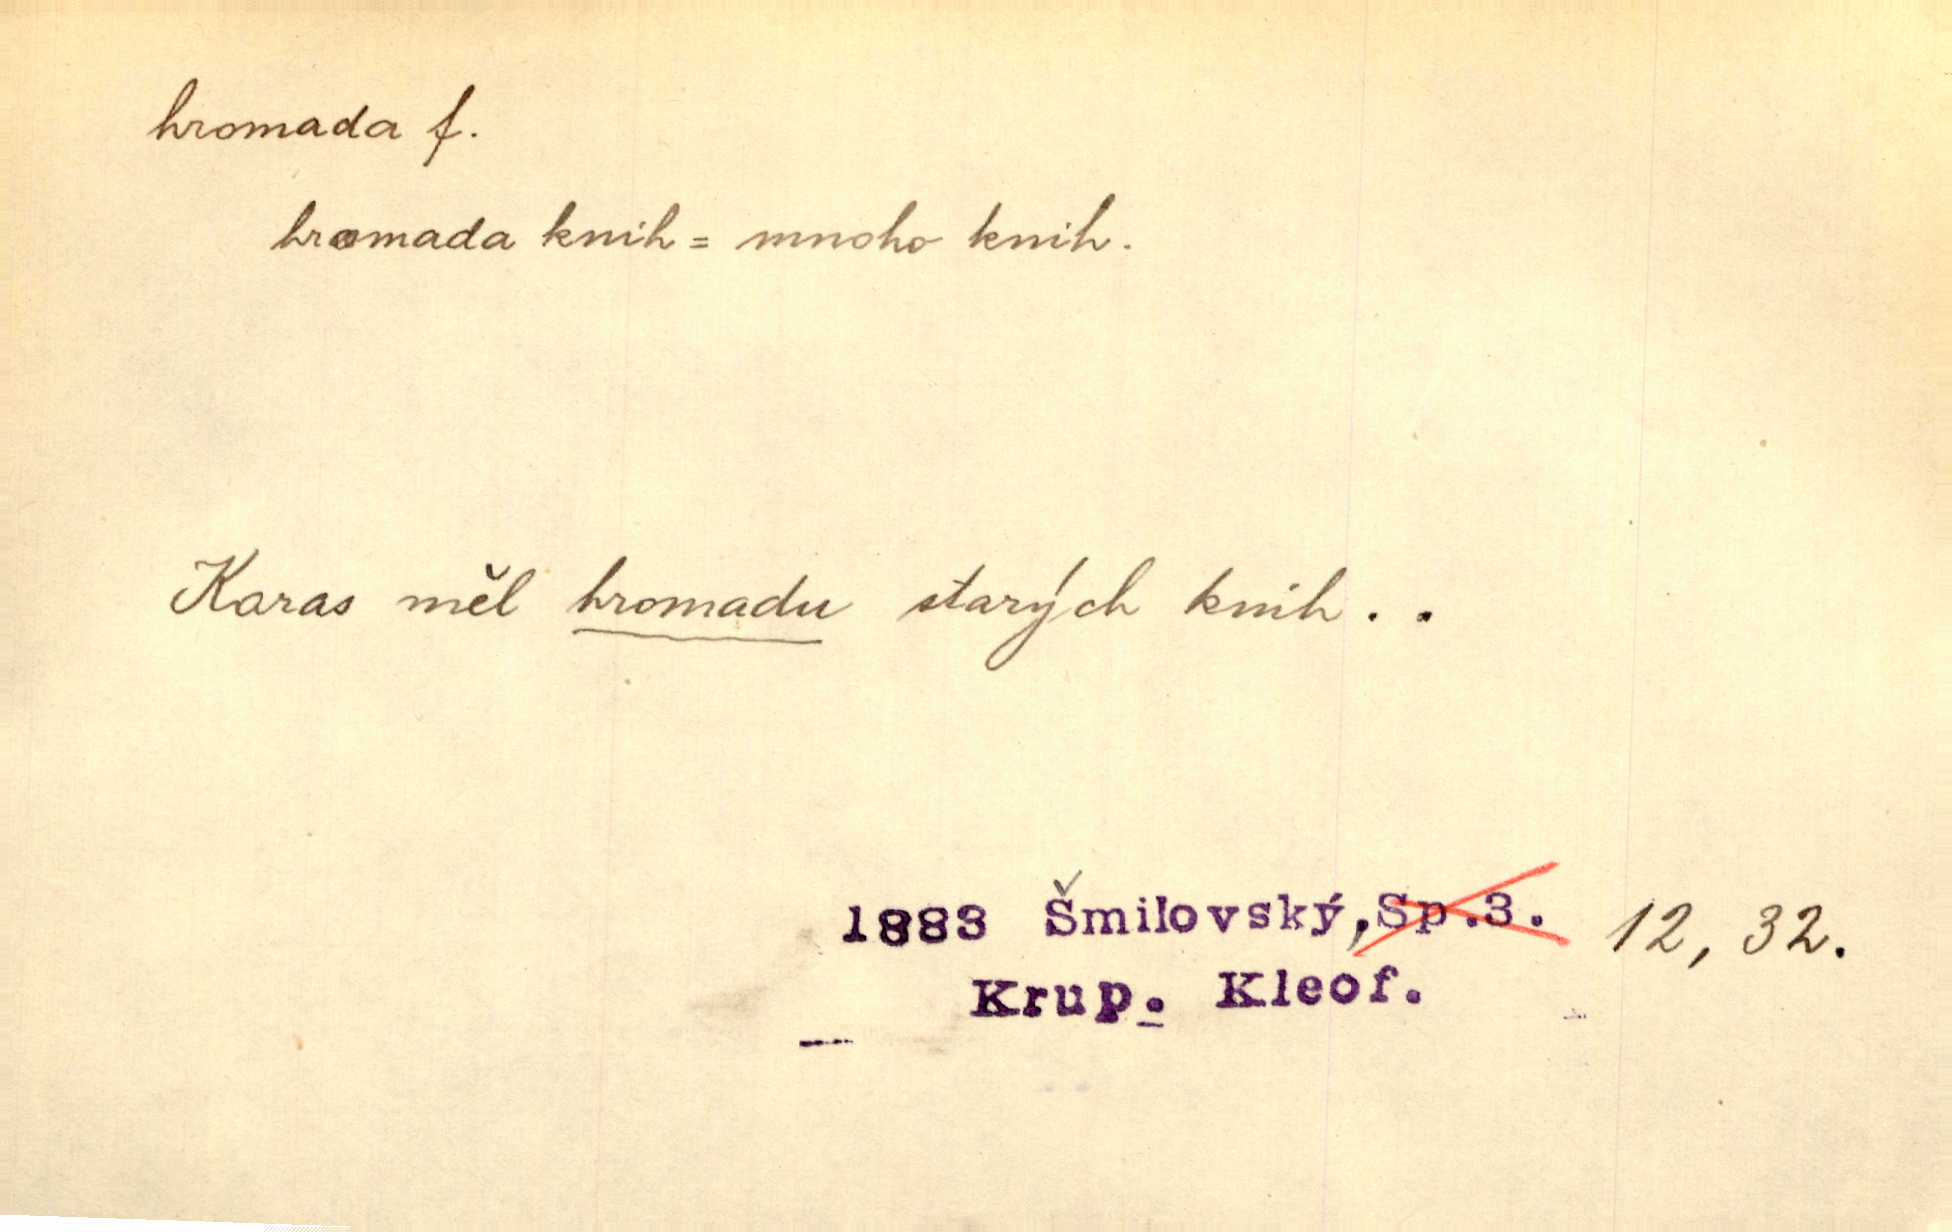 hromada f.
hromada knih = mnoho knih.
Karas měl hromadu starých knih . .
1883 Šmilovský, Sp.3. 12, 32.
Krup. Kleof.